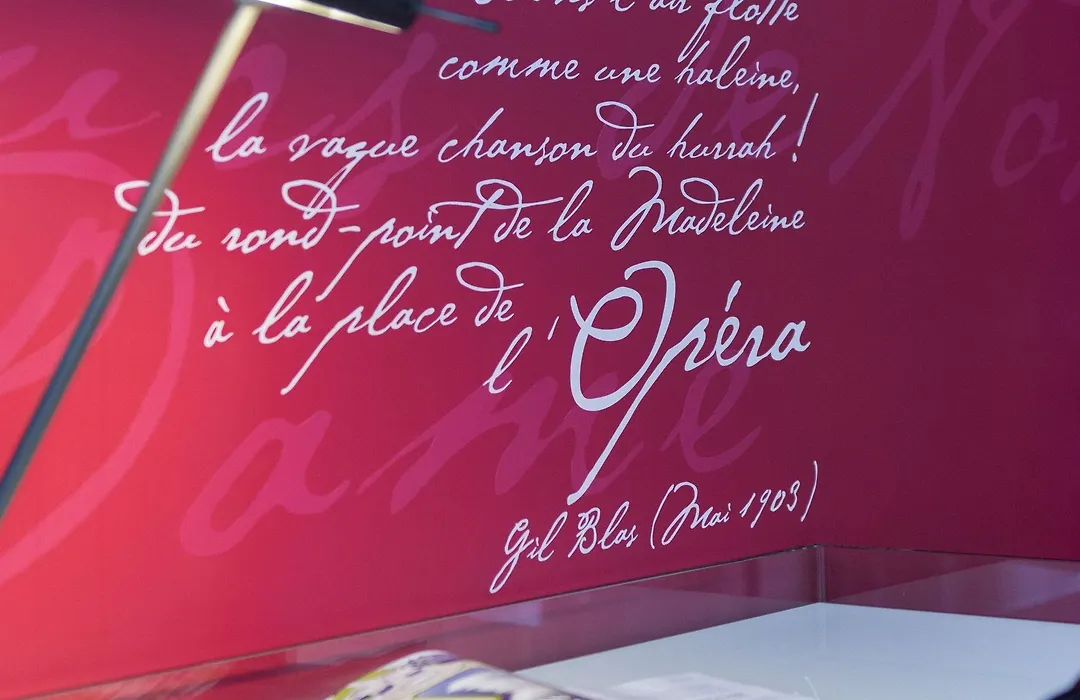 l'air flotte
comme une haleine,
la vague chanson du hurrah !
Du rond-point de la Madeleine
à la place de
l'Opéra
Gil Blas (Mai 1903)
de
Dame